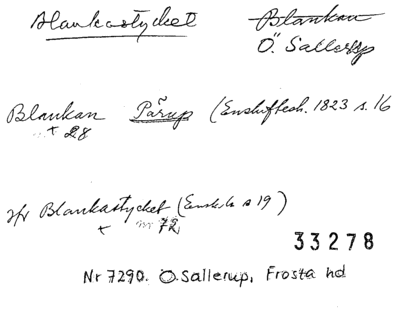 Blankastycket Blankan
Ö. Sallerup
Blankan Pårup (Enskiftesh. 1823 s. 16
+ 28
jfr Blankastycket (Ensk. s 19)
+ nr 72
33278
Nr 7290. Ö. Sallerup, Frosta hd